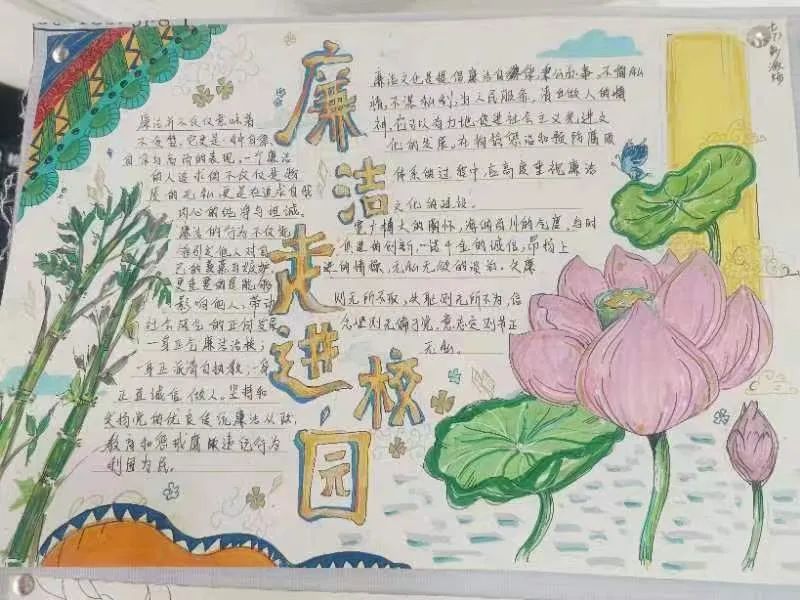 廉洁走进校园
廉洁并不仅仅意味着
不贪婪,它更是一种自律、
自守与高尚的表现。一个廉洁
的人追求的不仅仅是物
质的无私,更是在追求自我
内心的纯净与坦诚。
廉洁的行为不仅能
够引起他人对自
己的
更重要的是能够
影响他人,带动
社会风气的正向发展
一身正气廉洁治校;
一身正派清白执教;一
正直诚信做人。坚持和
发扬党的优良传统廉洁从政,
教育和惩戒腐败违纪行为
利国为民。
廉洁文化是提倡廉洁自律秉公办事、不徇私
情、不谋私利,为人民服务,清白做人的精
神,它可以有力地促进社会主义先进文
化的发展,在构筑惩治和预防腐败
体系的过程中,应高度重视廉洁
文化的建设。
宽广博大的胸怀,海纳百川的气度,与时
俱进的创新,一诺千金的诚信,昂扬上
进的情操,无私无欲的
则无所不取,失耻则无所不为,信
念坚则无偏于党,意志定则节正
无私。